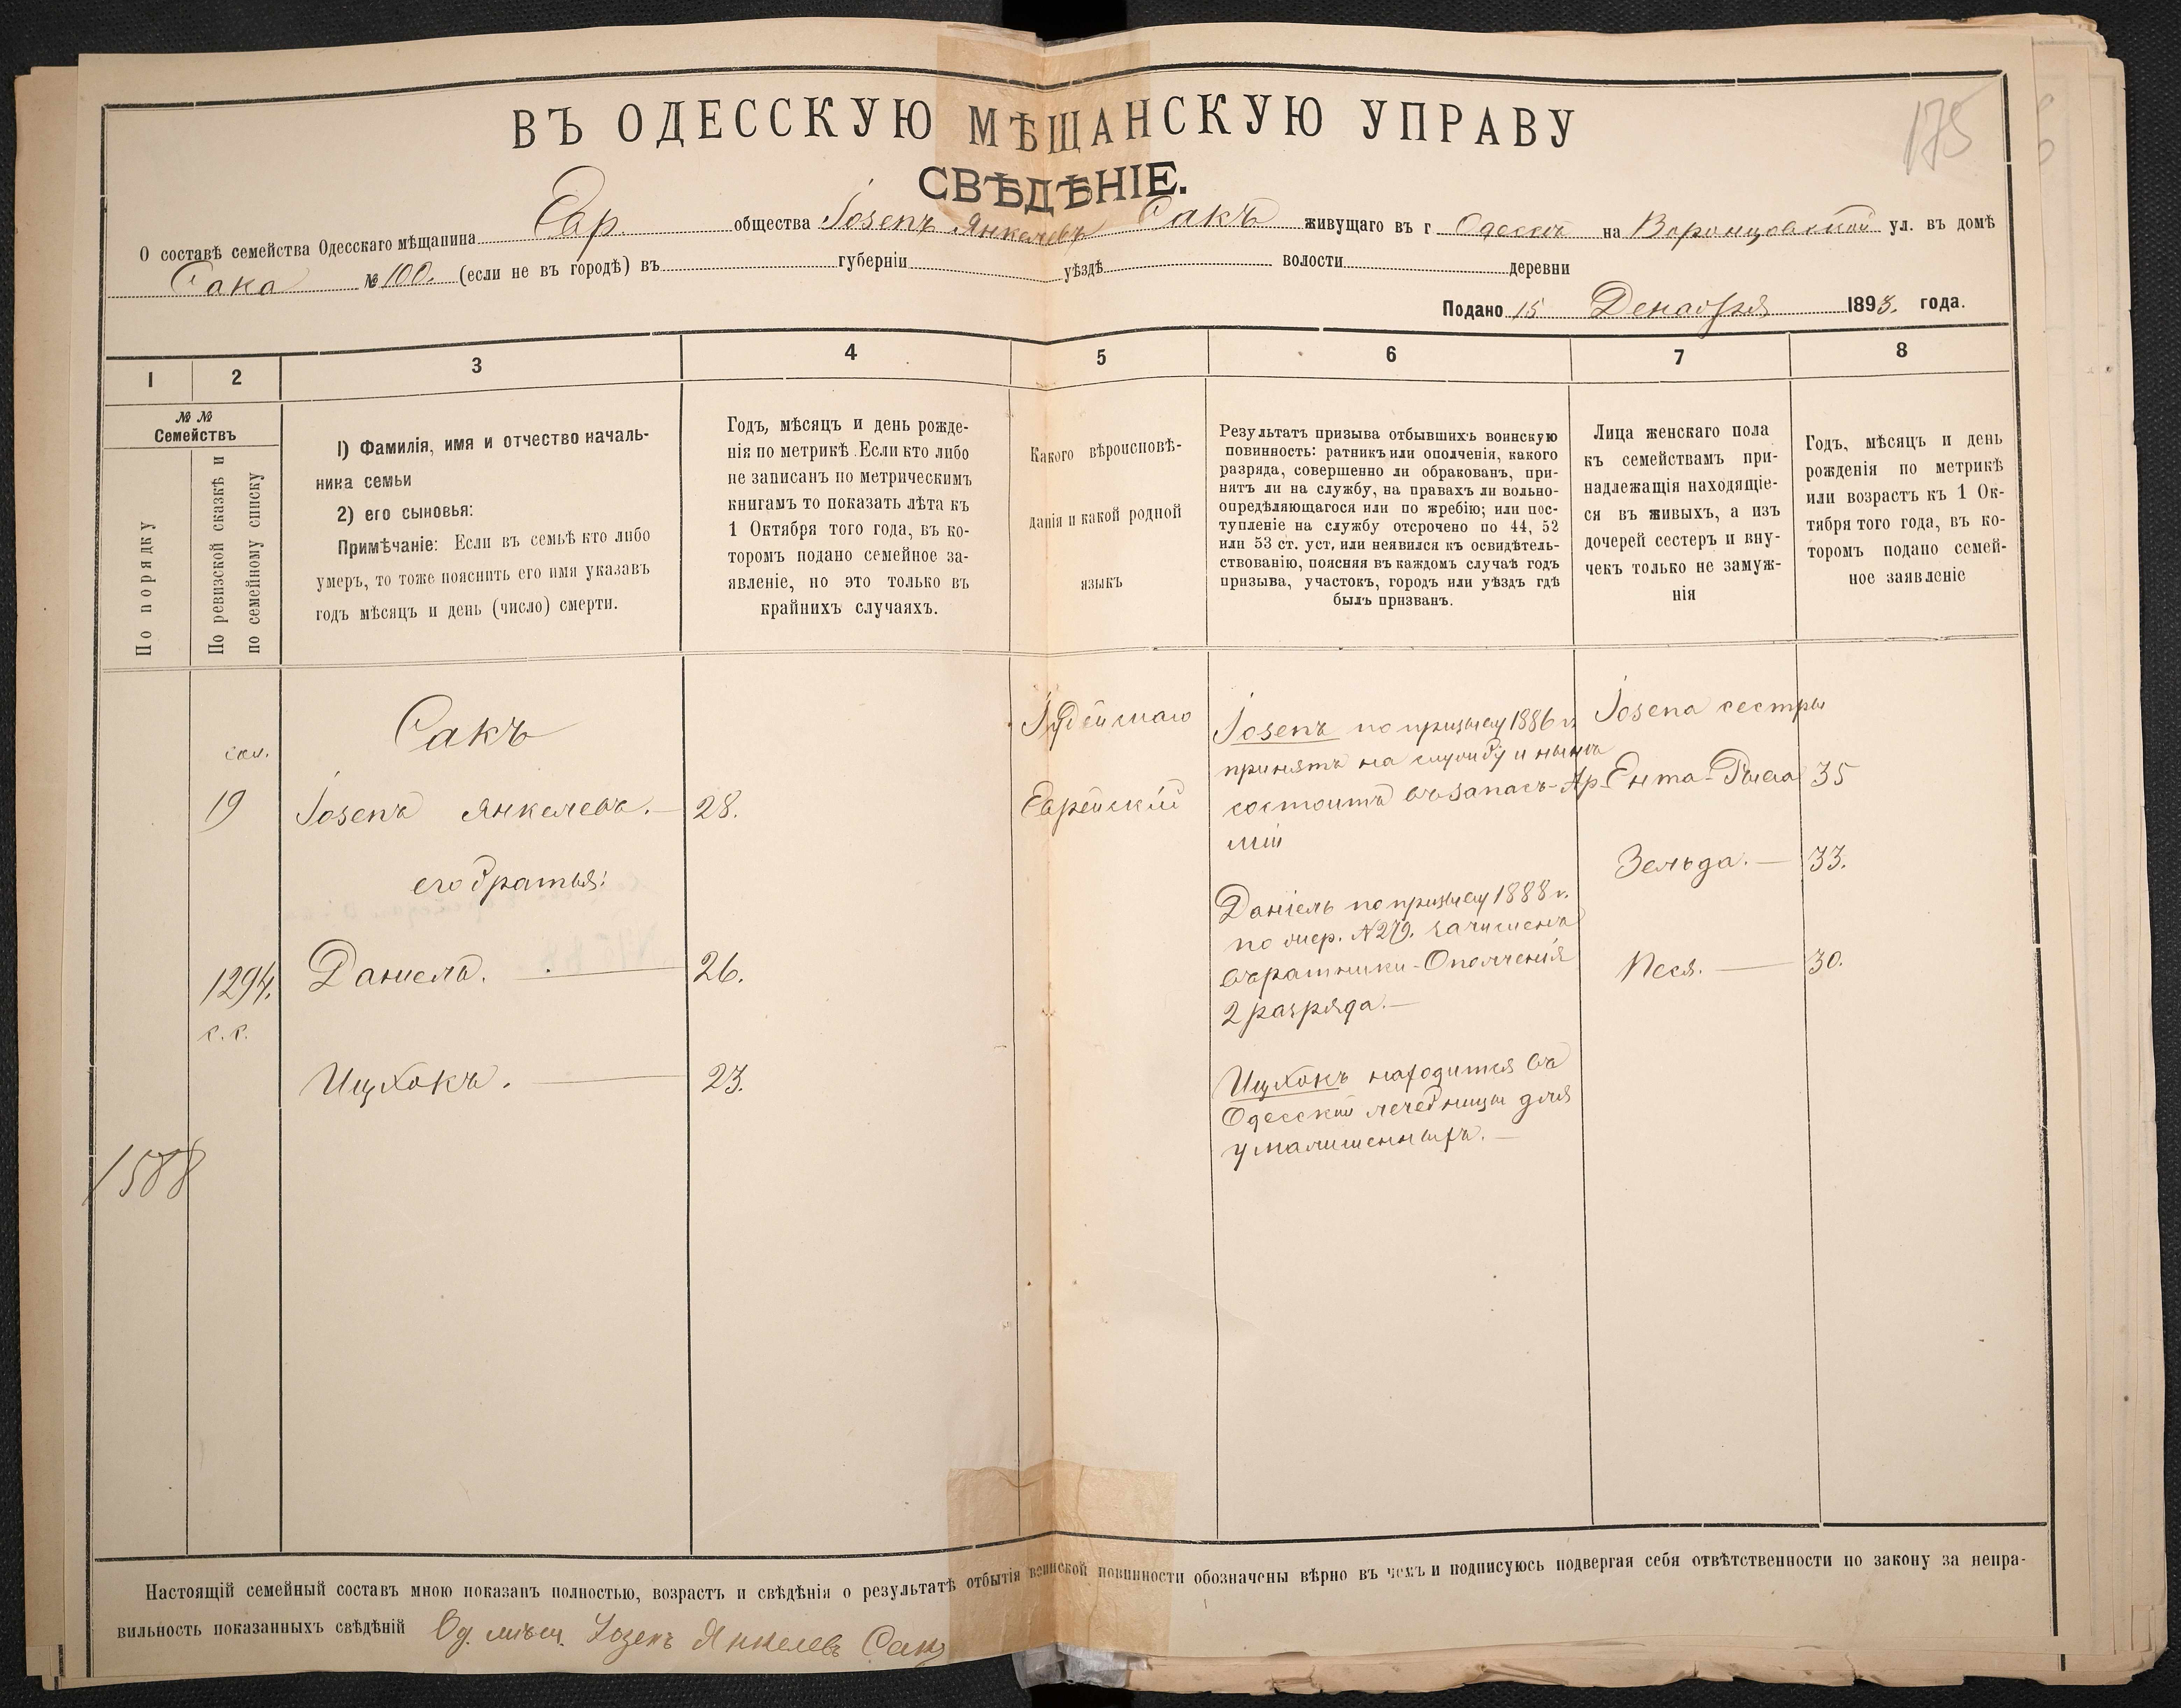 175
ВЪ ОДЕССКУЮ МѢЩАНСКУЮ УПРАВУ
СВѢДѢНІЕ.
О составѣ семейства Одесскаго мѣщанина Евр. общества Іозепъ Янкелевъ Сакъ живущаго въ г Одессѣ на Воронцовской ул. въ домѣ
Сака № 100. (если не въ городѣ) въ губерніи уѣздѣ волости деревни
Подано 15 Декабря 1893. года.
1 2 3 4 5 6 7 8
№ № Семействъ
По порядку
По ревизской сказкѣ и
по семейному списку
1) Фамилія, имя и отчество началь-
ника семьи
2) его сыновья:
Примѣчаніе: Если въ семьѣ кто либо
умеръ, то тоже пояснить его имя указавъ
годъ мѣсяцъ и день (число) смерти.
Годъ, мѣсяцъ и день рожде-
нія по метрикѣ. Если кто либо
не записанъ по метрическимъ
книгамъ то показать лѣта къ
1 Октября того года, въ ко-
торомъ подано семейное за-
явленіе, но это только въ
крайнихъ случаяхъ.
Какого вѣроисповѣ-
данія и какой родной
языкъ
Результатъ призыва отбывшихъ воинскую
повинность: ратникъ или ополченія, какого
разряда, совершенно ли обракованъ, при-
нятъ ли на службу, на правахъ ли вольно-
опредѣляющагося или по жребію; или пос-
тупленіе на службу отсрочено по 44, 52
или 53 ст. уст, или неявился къ освидѣтель-
ствованію, поясняя въ каждомъ случаѣ годъ
призыва, участокъ, городъ или уѣздъ гдѣ
былъ призванъ.
Лица женскаго пола
къ семействамъ при-
надлежащія находящіе-
ся въ живыхъ, а изъ
дочерей сестеръ и вну-
чекъ только не замуж-
нія
Годъ, мѣсяцъ и день
рожденія по метрикѣ
или возрастъ къ 1 Ок-
тября того года, въ ко-
торомъ подано семей-
ное заявленіе
19
1294.
1588
Сакъ
Іозепъ Янкелевъ. — 28.
его братья:
Даніель. — 26.
Ицхокъ. — 23.
Іудейскаго
Еврейскій
Іозепъ по призыву 1886 г.
принятъ на службу и нынѣ
состоитъ въ запасѣ Ар-
міи
Даніель по призыву 1888 г.
по жер. № 279. зачисленъ
въ ратники Ополченія
2 разряда. —
Ицхокъ находится въ
Одесской лечебницы для
умалишенныхъ. —
Іозепа сестры
Ента-Рыса 35
Зельда. — 33.
Песя. — 30.
Настоящій семейный составъ мною показанъ полностью, возрастъ и свѣдѣнія о результатѣ отбытія воинской повинности обозначены вѣрно въ чемъ и подписуюсь подвергая себя отвѣтственности по закону за непра-
вильность показанныхъ свѣдѣній Од. мѣщ. Іозепъ Янкелевъ Сакъ